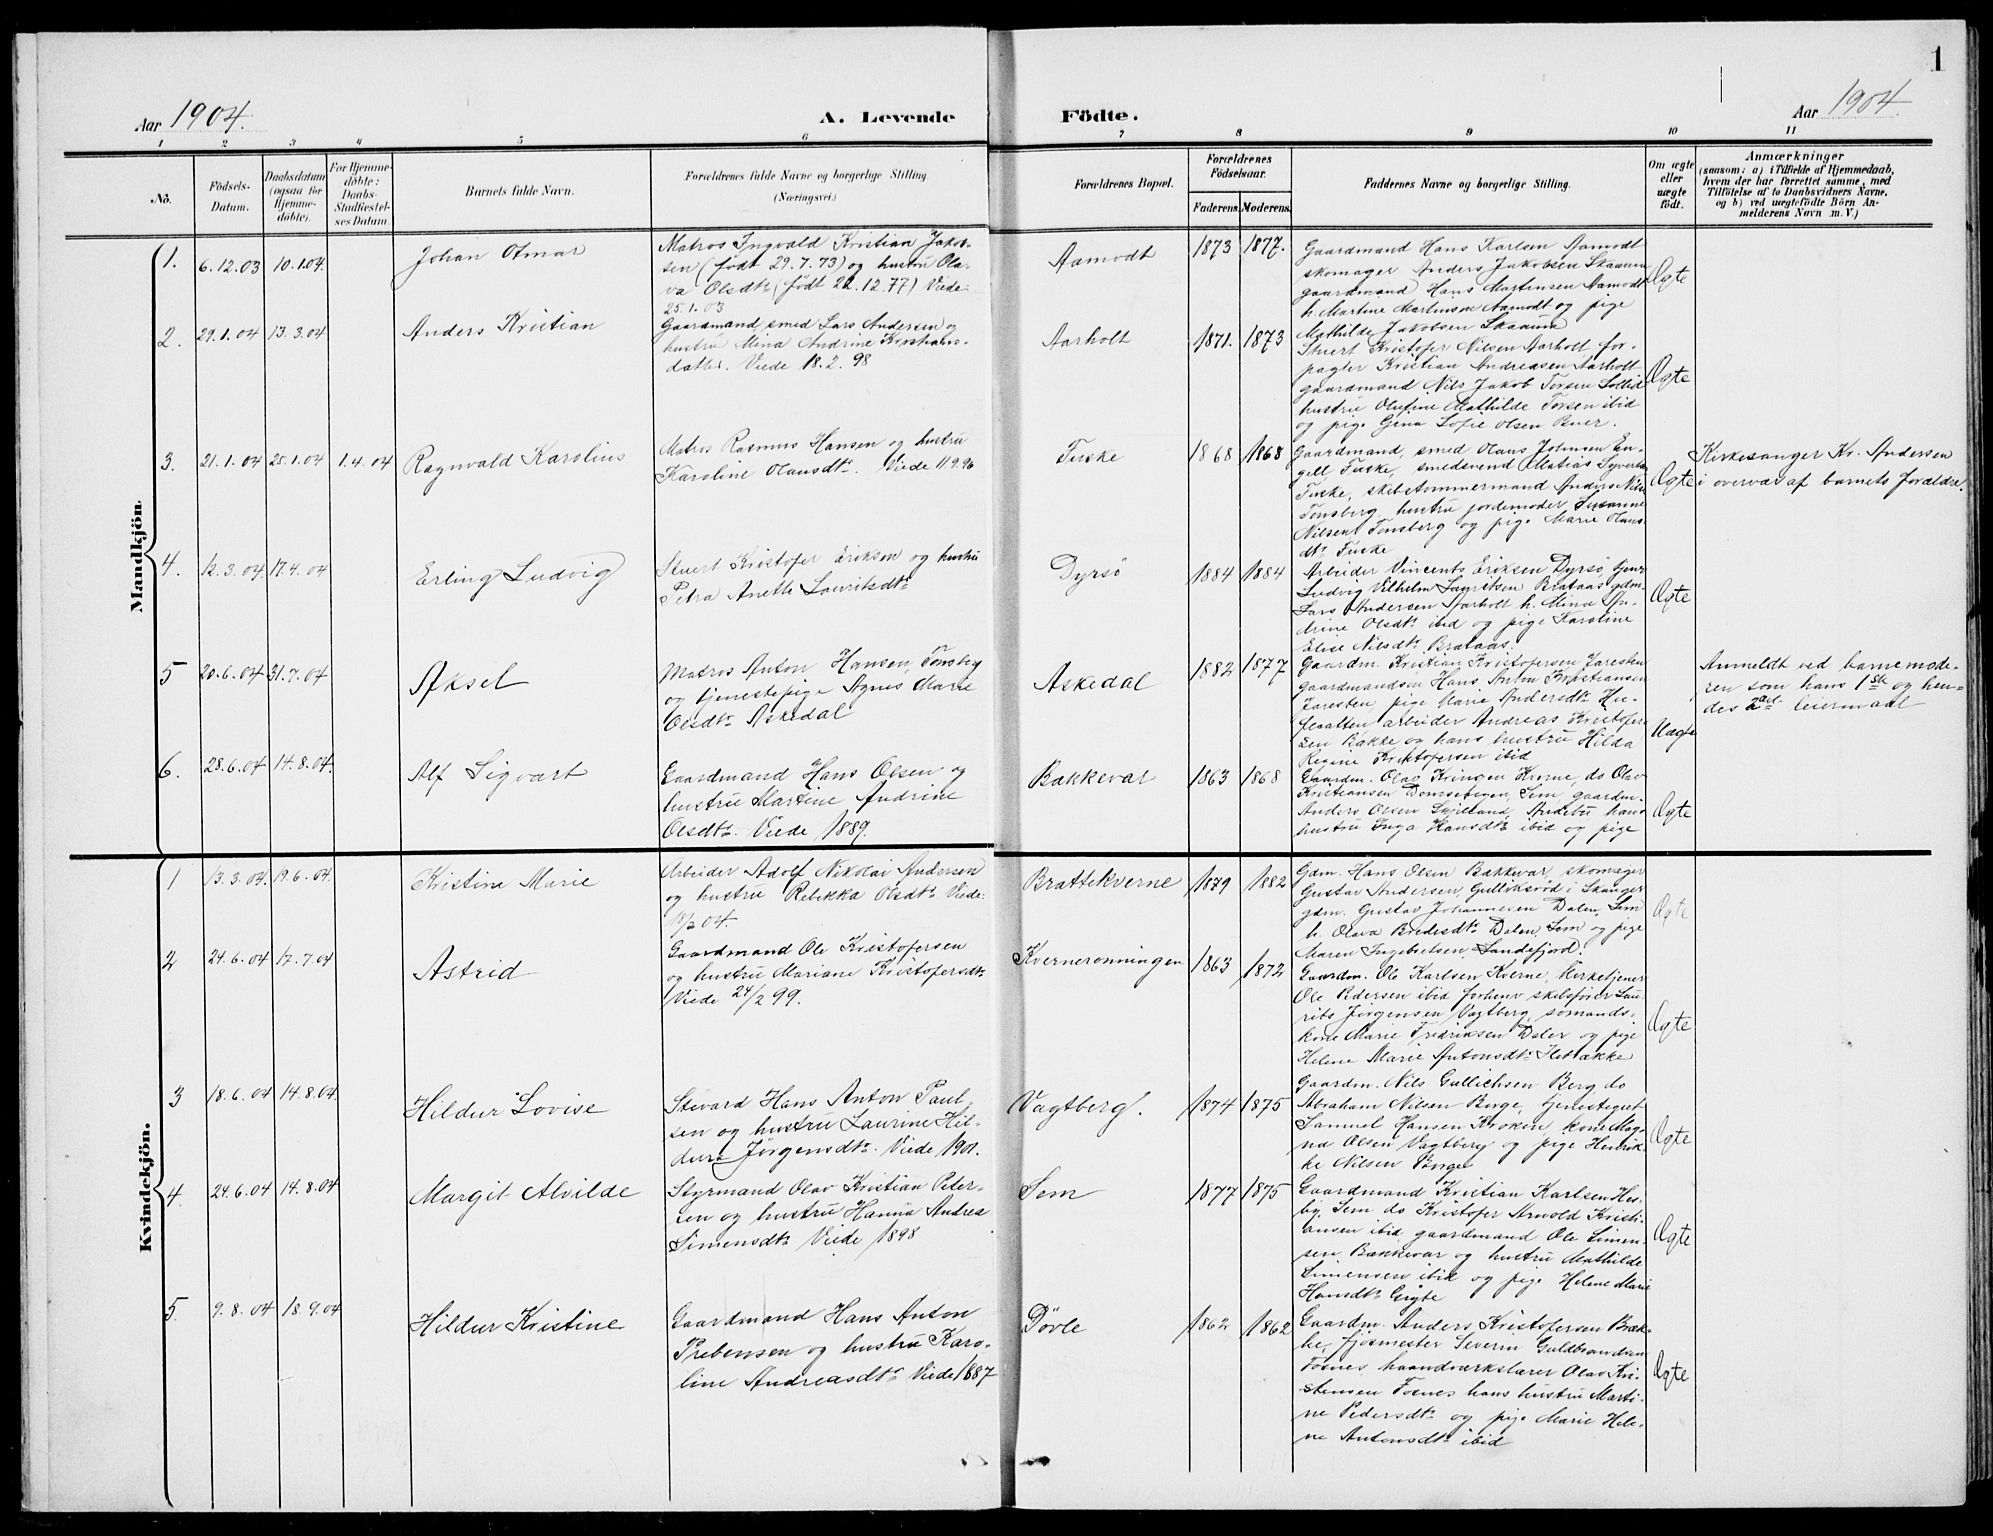 1
Aar 1904.
A. Levende
Födte.
Aar 1904.
1 2 3 4 5 6 7 8 9 10 11
No.
Födsels-
Datum.
Daabsdatum
(ogsaa for
Hjemme-
döbte).
For Hjemme-
döbte:
Daabs-
Stadfæstel-
ses Datum.
Barnets fulde Navn.
Forældrenes fulde Navne og borgerlige Stilling.
(Næringsvei.)
Forældrenes Bopæl.
Forældrenes
Födselsaar.
Faderens. Moderens.
Faddernes Navne og borgerlige Stilling.
Om ægte
eller
uægte
födt.
Anmærkninger
(saasom: a) i Tilfælde af Hjemmedaab,
hvem der har forrettet samme, med
Tilföielse af to Daabsvidners Navne,
og b) ved uægtefödte Börn An-
melderens Navn m. V.)
Mandkjön.
1. 6.12.03 10.1.04. Johan Otmar
Matros Ingvald Kristian Jakob-
sen (födt 29.7.73) og hustru Ola-
va Olsdtr (födt 22.12.77) Viede
25.1.03
Aamodt 1873 1877.
Gaardmand Hans Karlsen Aamodt
skomager Anders Jakobsen Skaaum
gaardmand Hans Martinsen Aamodt
h. Martine Martinsen Aamodt og pige
Mathilde Jakobsen Skaaum
Ægte
2. 29.1.04 13.3.04 Anders Kristian
Gaardmand, smed Lars Andersen og
hustru Mina Andrine Kristians-
datter. Viede 18.2.98
Aarholt 1871. 1873
Stuert Kristofer Nilsen Aarholt, for-
pagter Kristian Andreasen Aarholt
gaardmand Nils Jakob Torsen Sollid
hustru Olufine Mathilde Torsen ibid
og pige Gina Sofie Olsen Buer.
Ægte
3. 21.1.04 25.1.04 1.4.04 Ragnvald Karolius
Matros Rasmus Hansen og hustru
Karoline Olausdtr. Viede 11.9.96
Fuske 1868 1868
Gaardmand, smed Olaus Johnsen En-
gell Fuske, smedsvend Matias Syverts.
Fuske, skibstømmermand Anders Nils.
Tønsberg, hustru jordemoder Susanne
Nilsen Tønsberg og pige Marie Olaus-
dtr Fuske
Ægte
Kirkesanger Kr. Andersen
i overvær af barnets forældre.
4. 12.3.04. 17.4.04 Erling Ludvig
Stuert Kristofer Eriksen og hustru
Petra Anette Lauritsdtr
Dyrsø 1884 1884
Arbeider Vincents Eriksen Dyrsø, tjener
Ludvig Vilhelm Lauritsen Brataas gdm.
Lars Andersen Aarholt h. Mina An-
drine Olsdtr ibid og pige Karoline
Elise Nilsdtr Brataas.
Ægte
5 20.6.04 31.7.04 Aksel
Matros Anton Hansen, Tønsberg
og tjenestepige Agnes Marie
Olsdtr Askedal
Askedal 1882 1877
Gaardm. Kristian Kristofersen Jaresten
gaardmandsøn Hans Anton Kristiansen
Jaresten pige Marie Andersdtr Hu-
flaatten arbeider Andreas Kristofer-
sen Bakke og hans hustru Hilda
Regine Kristofersen ibid
Uægte
Anmeldt ved barnemode-
ren som hans 1ste og hen-
des 2det leiermaal
6. 28.6.04 14.8.04. Alf Sigvart
Gaardmand Hans Olsen og
hustru Martine Andrine
Olsdtr. Viede 1889.
Bakkevar 1863 1868
Gaardm. Olav Kringen Kverne, do Olav
Kristiansen Domsebogen, Sem, gaardm.
Anders Olsen Skjelland, Andebu hans
hustru Inga Hansdtr ibid og pige
Ægte
Kvindekjön.
1 13.3.04. 19.6.04. Kristine Marie
Arbeider Adolf Nikolai Andersen
og hustru Rebekka Olsdtr Viede:
18/2 04.
Brattekverne 1879 1882
Gdm. Hans Olsen Bakkevar, skomager
Gustav Andersen, Gulliksrød i Skauger
gdm. Gustav Johannesen Dalen, Sem
h. Olava Bredesdtr Dalen, Sem og pige
Maren Ingebretsen, Sandefjord.
Ægte
2 24.6.04 17.7.04 Astrid
Gaardmand Ole Kristofersen
og hustru Mariane Kristofersdtr
Viede 24/2 99.
Kverneronningen 1863 1872
Gaardm. Ole Karlsen Kverne, kirketjener
Ole Pedersen ibid forhenv. skibsfører Lau-
rits Jørgensen Vagtberg, sømands-
kone Marie Fredriksen Dalen og pige
Helene Marie Antonsdtr Ilebrække
Ægte
3 18.6.04 14.8.04. Hildur Lovise
Stevard Hans Anton Paul-
sen og hustru Laurine Hil-
dur Jørgensdtr. Viede 1901.
Vagtberg. 1874 1875
Gaardm. Nils Gullichsen Berg do
Abraham Nilsen Borge, tjenestegut
Samuel Hansen Kroken, kone Mag-
na Olsen Vagtberg og pige Henrik-
ke Nilsen Borge
Ægte
4 24.6.04 14.8.04 Margit Alvilde
Styrmand Olav Kristian Peter-
sen og hustru Hanna Andrea
Simensdtr Viede 1898
Sem 1877 1875
Gaardmand Kristian Karlsen Hus-
by, Sem do Kristofer Arnold Kristi-
ansen ibid, gaardmand Ole Simen-
sen Bakkevar og hustru Mathilde
Simensen ibid og pige Helene Marie
Hansdtr Gryte
Ægte
5 9.8.04 18.9.04 Hildur Kristine
Gaardmand Hans Anton
Prebensen og hustru Karo-
line Andreasdtr Viede 1887
Døvle 1862 1862
Gaardm. Anders Kristofersen Bræk-
ke, fjøsmester Severin Guldbrandsen
Fosnes haandværkslærer Olav Kri-
stensen Fosnes hans hustru Marti-
ne Pedersdtr og pige Marie Hele-
ne Antonsdtr ibid
Ægte